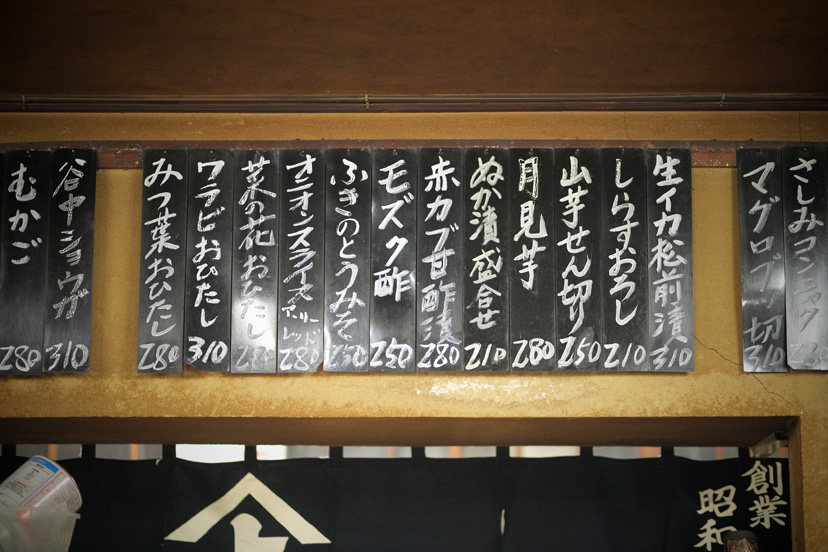 さしみコンニャク
マグロブツ切 310
生イカ松前漬 310
しらすおろし 210
山芋せん切り 250
月見芋 280
ぬか漬盛合せ 210
赤カブ甘酢漬 280
モズク酢 250
ふきのとうみそ 250
オニオンスライス アーリーレッド 280
菜の花おひたし 280
ワラビおひたし 310
みつ葉おひたし 280
谷中ショウガ 310
むかご 280
創業
昭和